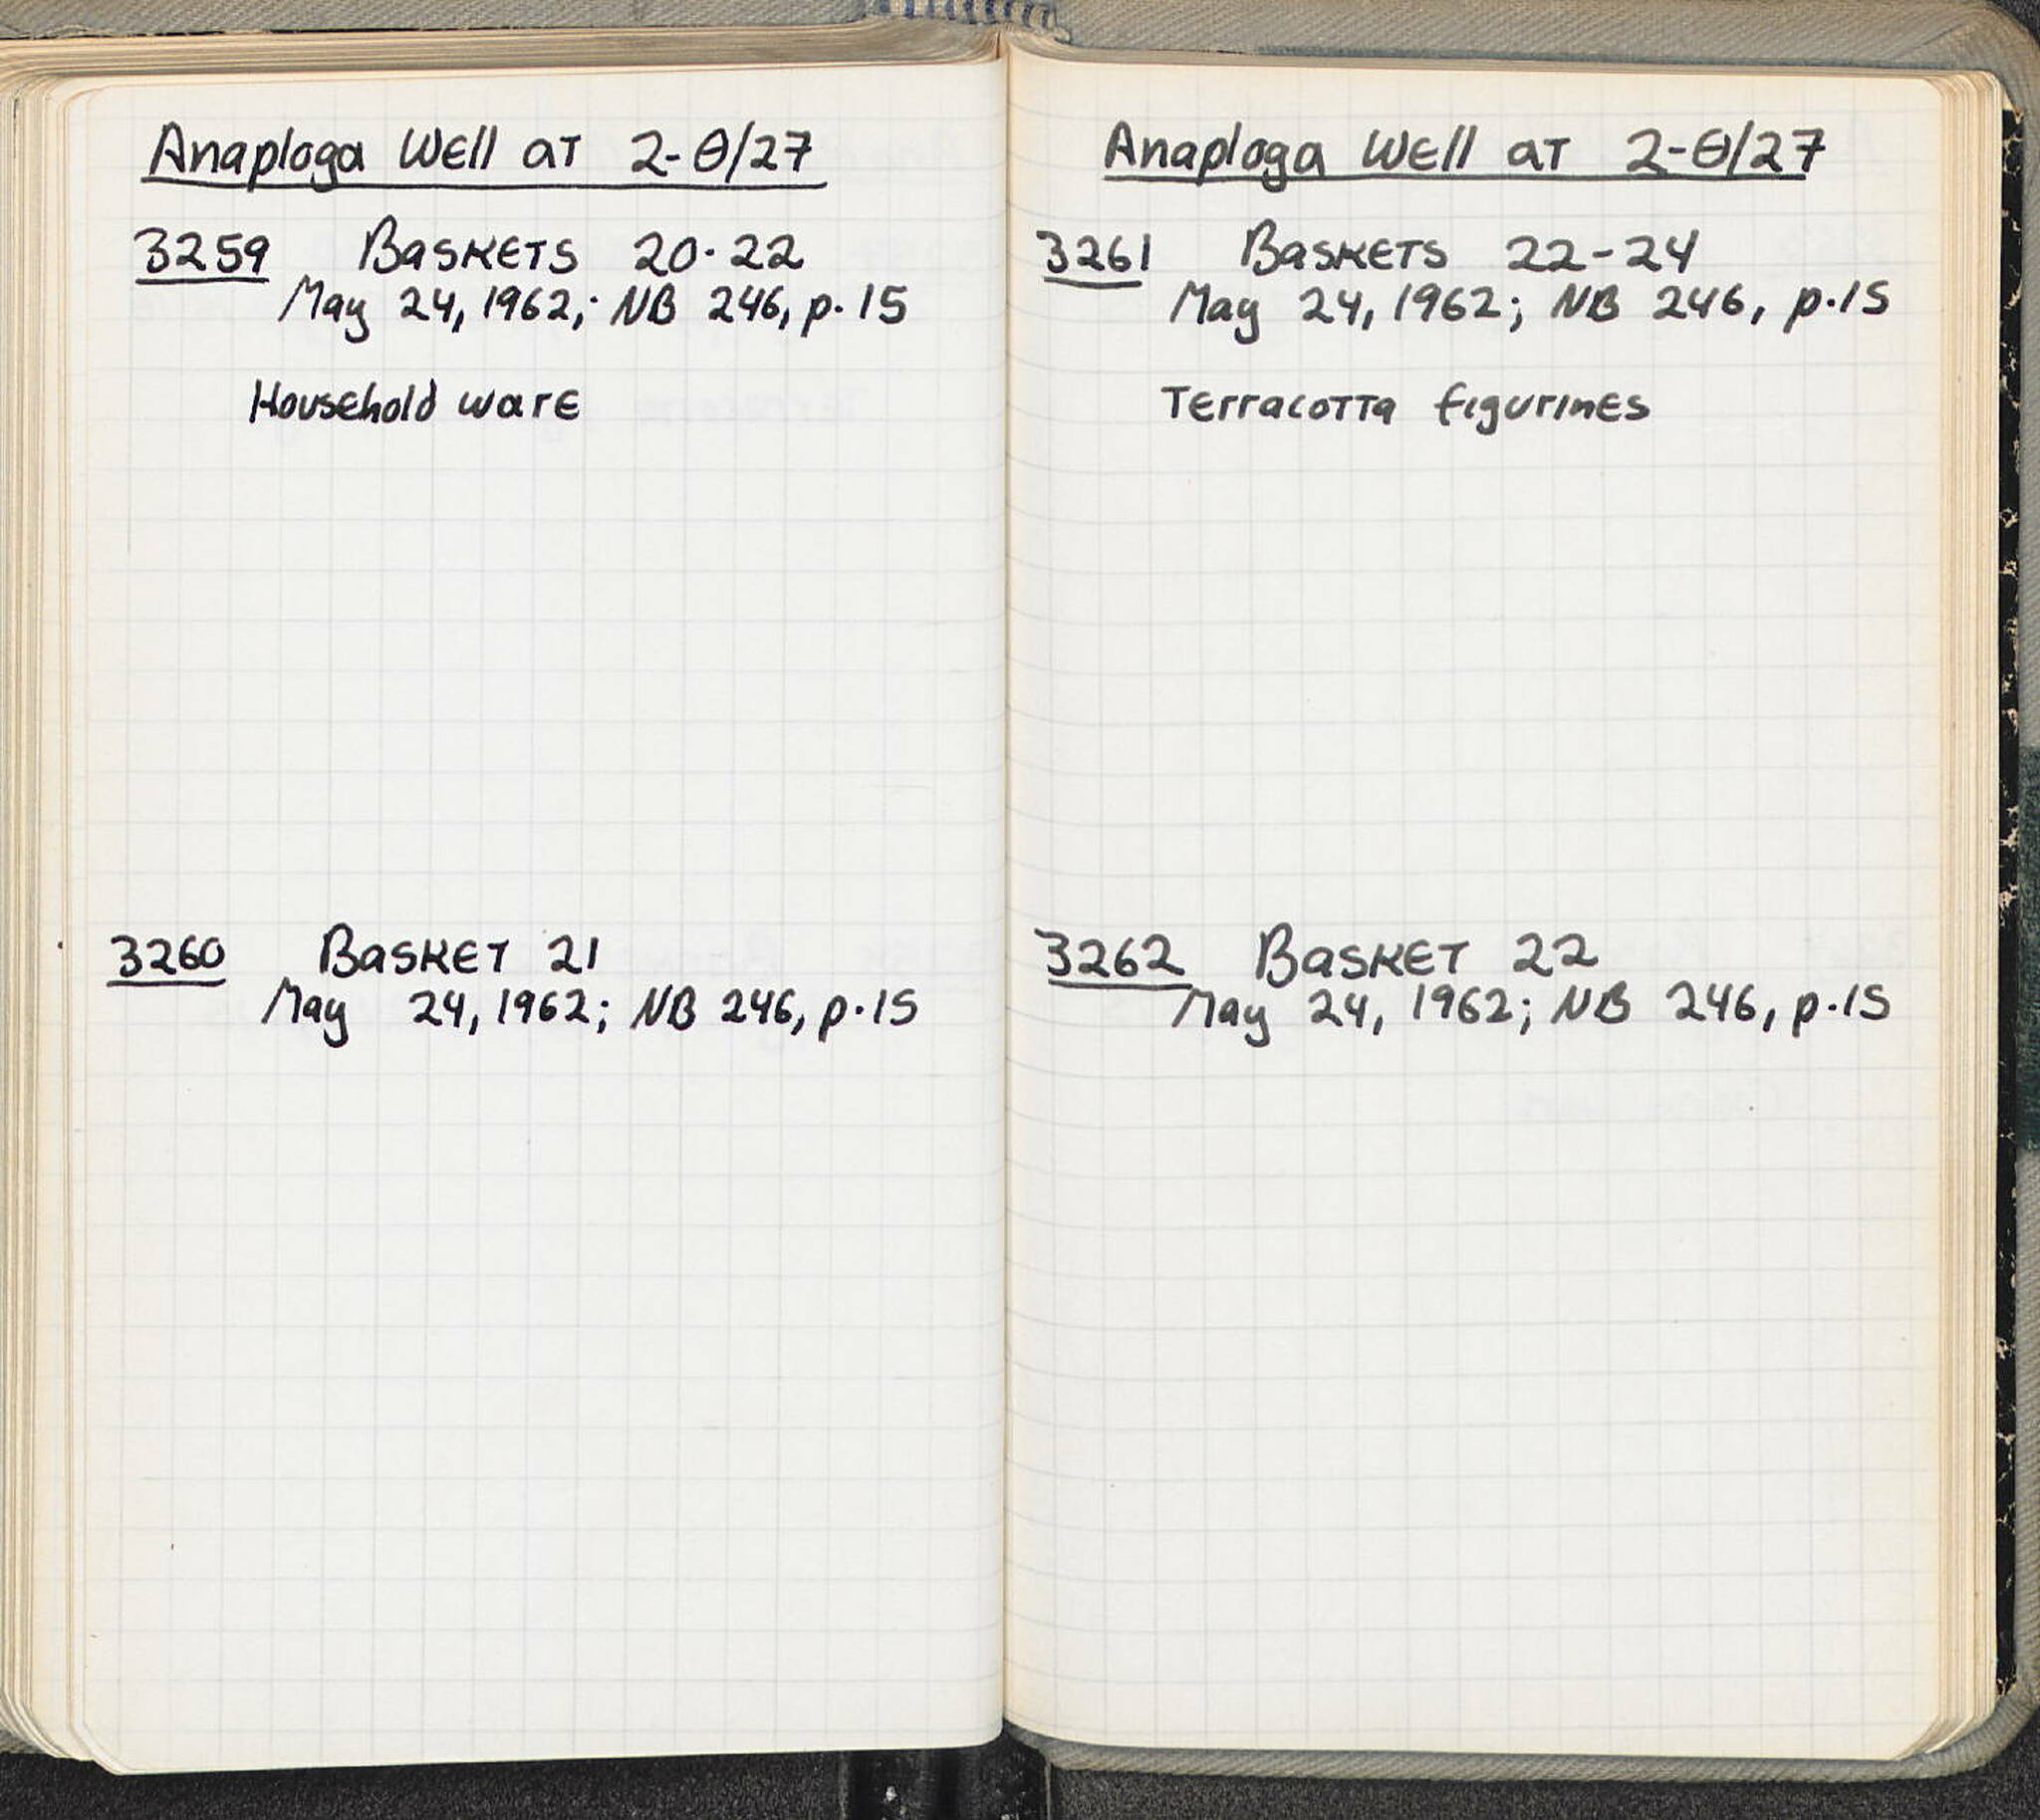 Anaploga Well at 2-Θ/27
3259 Baskets 20-22
May 24, 1962; NB 246, p. 15
Household ware
3260 Basket 21
May 24, 1962; NB 246, p. 15
Anaploga Well at 2-Θ/27
3261 Baskets 22-24
May 24, 1962; NB 246, p. 15
Terracotta figurines
3262 Basket 22
May 24, 1962; NB 246, p. 15